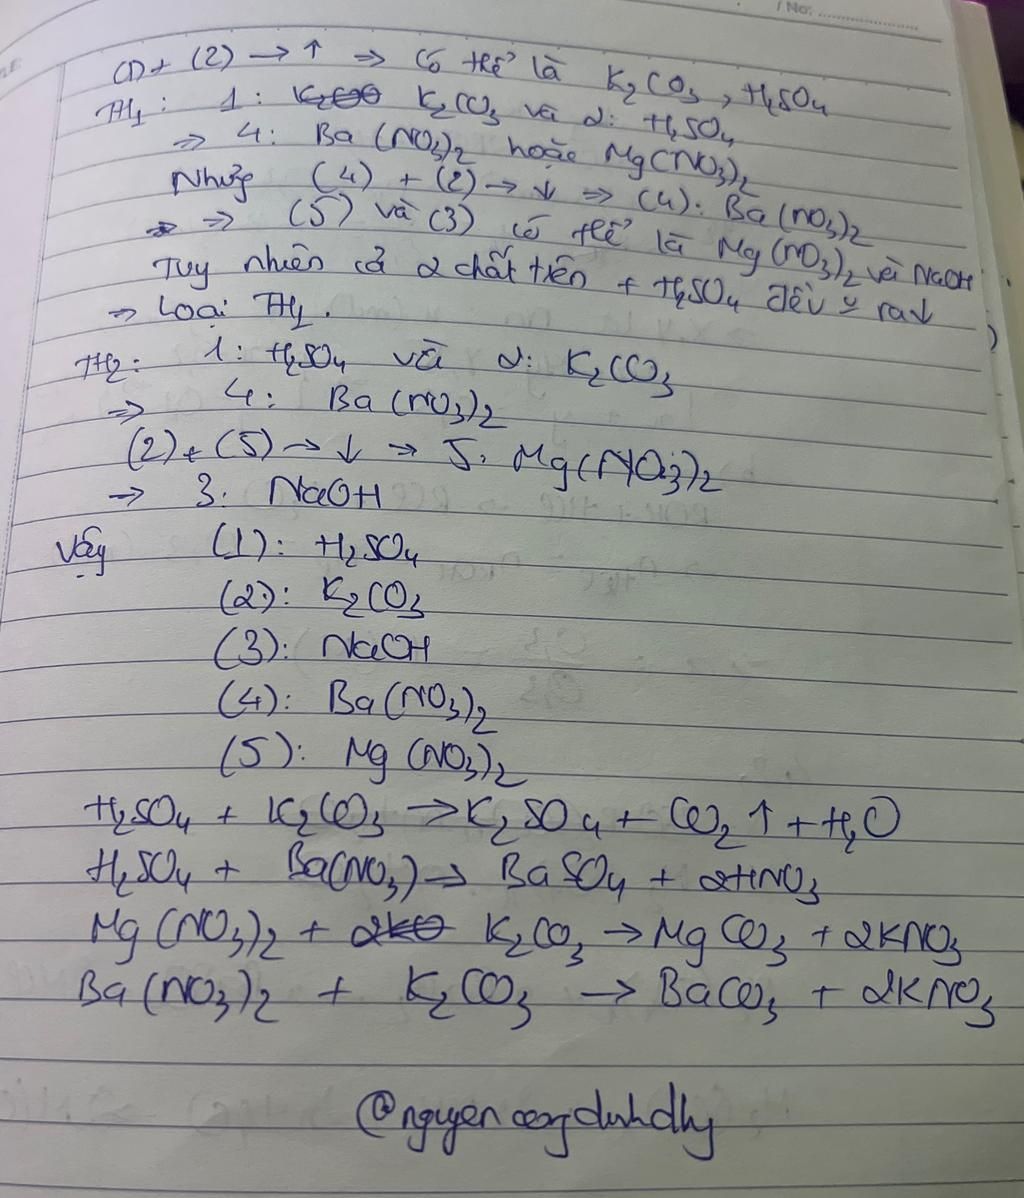 No:
(1) + (2) → ↑ ⇒ Có thể là K₂CO₃, H₂SO₄
TH₁: 1: K₂CO₃ và 2: H₂SO₄
⇒ 4: Ba(NO₃)₂ hoặc Mg(NO₃)₂
Nhưng (4) + (2) → ↓ ⇒ (4): Ba(NO₃)₂
⇒ (5) và (3) có thể là Mg(NO₃)₂ và NaOH
Tuy nhiên cả 2 chất trên + H₂SO₄ đều ra ↓
⇒ Loại TH₁.
TH₂: 1: H₂SO₄ và 2: K₂CO₃
⇒ 4: Ba(NO₃)₂
(2) + (5) → ↓ → 5: Mg(NO₃)₂
→ 3: NaOH
Vậy (1): H₂SO₄
(2): K₂CO₃
(3): NaOH
(4): Ba(NO₃)₂
(5): Mg(NO₃)₂
H₂SO₄ + K₂CO₃ → K₂SO₄ + CO₂ ↑ + H₂O
H₂SO₄ + Ba(NO₃) → BaSO₄ + 2HNO₃
Mg(NO₃)₂ + K₂CO₃ → MgCO₃ + 2KNO₃
Ba(NO₃)₂ + K₂CO₃ → BaCO₃ + 2KNO₃